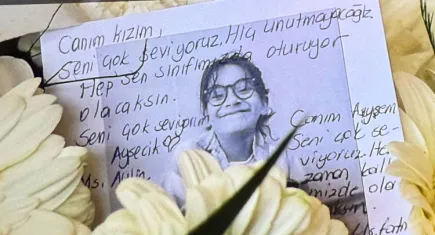 Canım kızım,
Seni çok seviyoruz. Hiç unutmayacağız
Hep sen sınıfımızda oturuyor
olacaksın.
Seni çok seviyorum
Ayşecik
Ms. Aylin
Canım Ayşem
Seni çok se-
viyoruz. He
zaman kal
imizde ola
Ms. Fatn